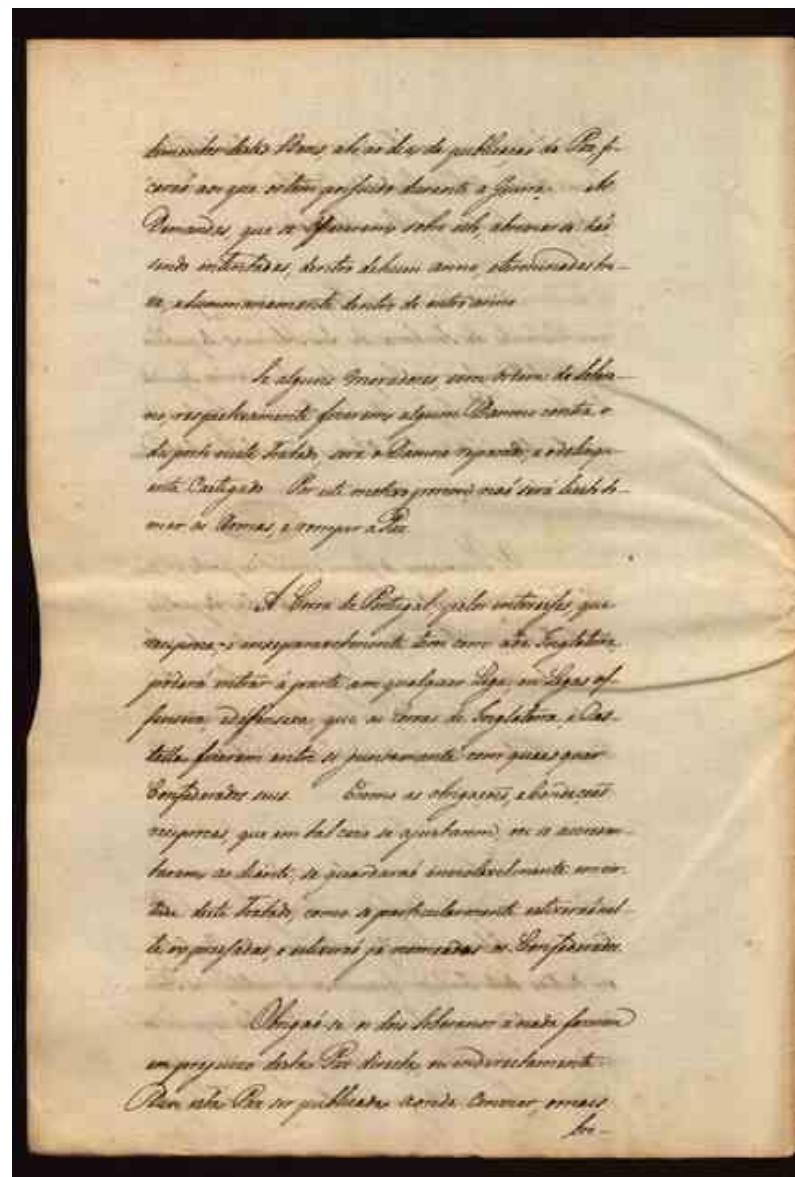 destes Bens, até ao dia da publicacaõ da Paz, fi-
caraõ aos que os tem possuido durante a Guerra. As
Demandas, que se fizerem sobre isto,
sendo intentadas, dentro de hum anno, e terminadas bre-
ve, e summariamente dentro de outro anno.
Se alguns Moradores sem ordem do Sobera-
no, respectivamente fizerem algum Damno contra o
disposto neste Tratado, será o Damno reparado, e o delinqu-
ente Castigado. Por este motivo porem naõ será licito to-
mar as Armas, e romper a Paz.
A Coroa de Portugal pelos interesses, que
reciproca e inseparavelmente tem com a de Inglaterra
poderá entrar á parte em qualquer Liga, ou Ligas of-
fensiva, e deffensiva, que as Coroas de Inglaterra, e Cas-
tella fizerem entre si juntamente com quaesquer
Confederados seus. Como as obrigacoẽs, e condicoẽs
reciprocas, que em tal caso se ajustarem, ou se accresen-
tarem ao diante, se guardaraõ inviolavelmente em vir-
tude deste Tratado, como se particularmente estiveraõ nel-
le expressadas, e estiveraõ já nomeados os Confederados.
Obrigaõ-se os dois Soberanos a nada fazerem
em prejuizo desta Paz directa, ou indirectamente.
esta Paz ser publicada aonde Convier, o mais
bre-